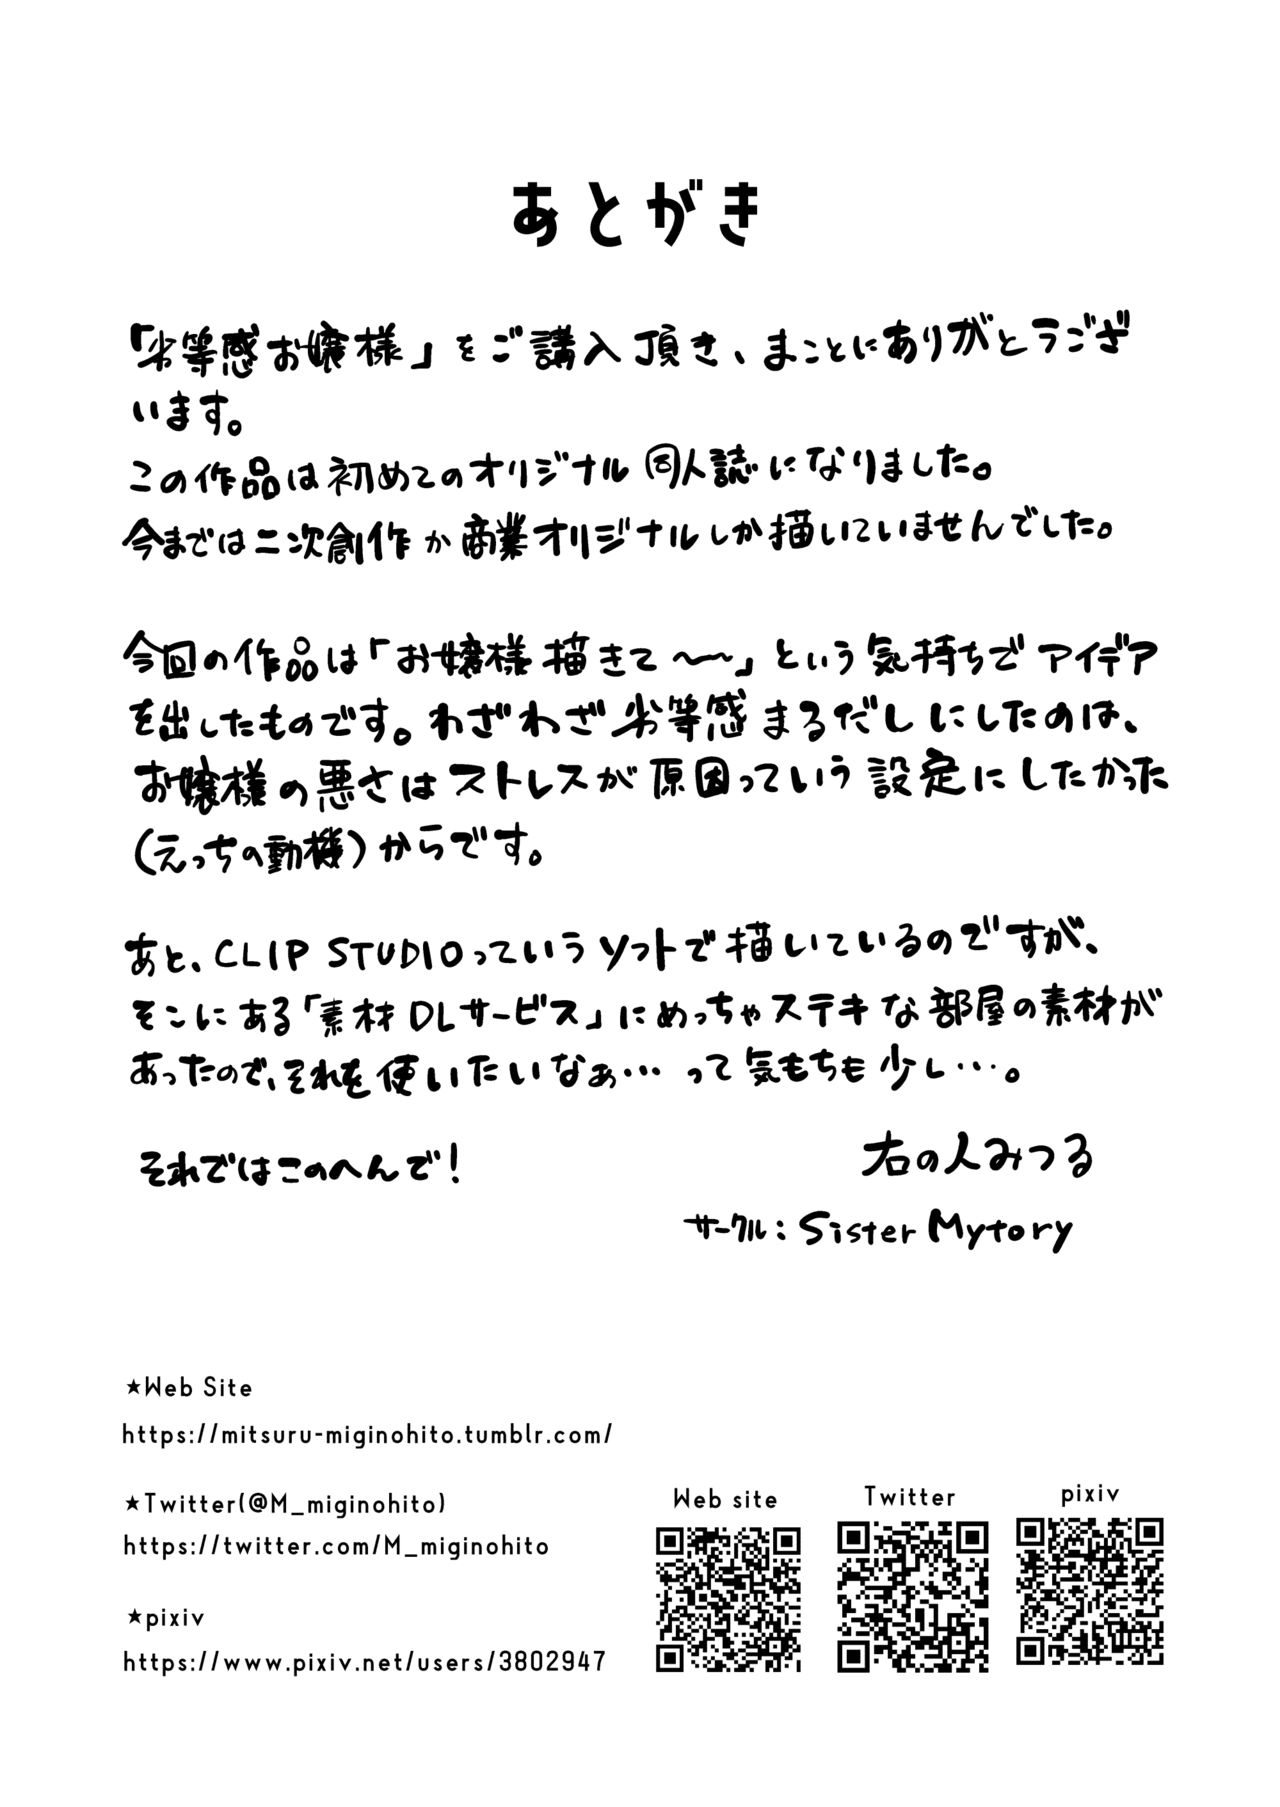 あとがき
「劣等感お嬢様」をご講入頂き、まことにありがとうござ
います。
この作品は初めてのオリジナル同人誌になりました。
今までは二次創作か商業オリジナルしか描いていませんでした。
今回の作品は「お嬢様描きて〜〜」という気持ちでアイデア
を出したものです。わざわざ劣等感まるだしにしたのは、
お嬢様の悪さはストレスが原因っていう設定にしたかった
(えっちの動機)からです。
あと、CLIP STUDIOっていうソフトで描いているのですが、
そこにある「素材DLサービス」にめっちゃステキな部屋の素材が
あったので、それを使いたいなぁ…って気もちも少し…。
それではこのへんで!
右の人みつる
サークル:Sister Mytory
★Web Site
https://mitsuru-miginohito.tumblr.com/
★Twitter(@M_miginohito)
https://twitter.com/M_miginohito
★pixiv
https://www.pixiv.net/users/3802947
Web site
Twitter
pixiv